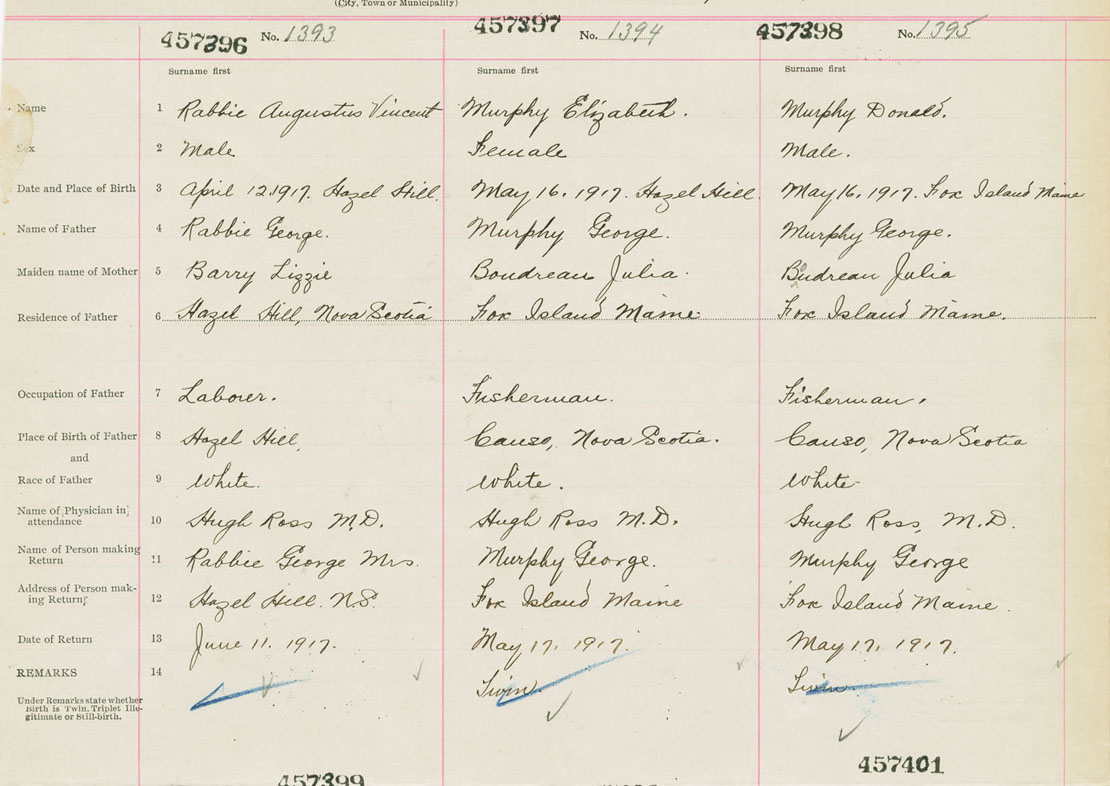 (City, Town or Municipality)
457396 No. 1393 457397 No. 1394 457398 No. 1395
Surname first Surname first Surname first
Name 1 Rabbie Augustus Vincent Murphy Elizabeth. Murphy Donald.
Sex 2 Male Female Male.
Date and Place of Birth 3 April 12.1917. Hazel Hill. May 16. 1917. Hazel Hill. May 16, 1917. Fox Island Maine
Name of Father 4 Rabbie George. Murphy George. Murphy George.
Maiden name of Mother 5 Barry Lizzie Boudreau Julia. Budreau Julia
Residence of Father 6 Hazel Hill, Nova Scotia Fox Island Maine. Fox Island Maine.
Occupation of Father 7 Laborer. Fisherman. Fisherman.
Place of Birth of Father 8 Hazel Hill, Canso, Nova Scotia. Canso, Nova Scotia
and
Race of Father 9 White. White. White.
Name of Physician in
attendance 10 Hugh Ross M.D. Hugh Ross M.D. Hugh Ross, M.D.
Name of Person making
Return 11 Rabbie George Mrs. Murphy George. Murphy George
Address of Person mak-
ing Return 12 Hazel Hill. N.S. Fox Island Maine Fox Island Maine.
Date of Return 13 June 11. 1917. May 17. 1917. May 17, 1917.
REMARKS 14 Twin. Twin.
Under Remarks state whether
Birth is Twin, Triplet Ille-
gitimate or Still-birth.
457399 457401